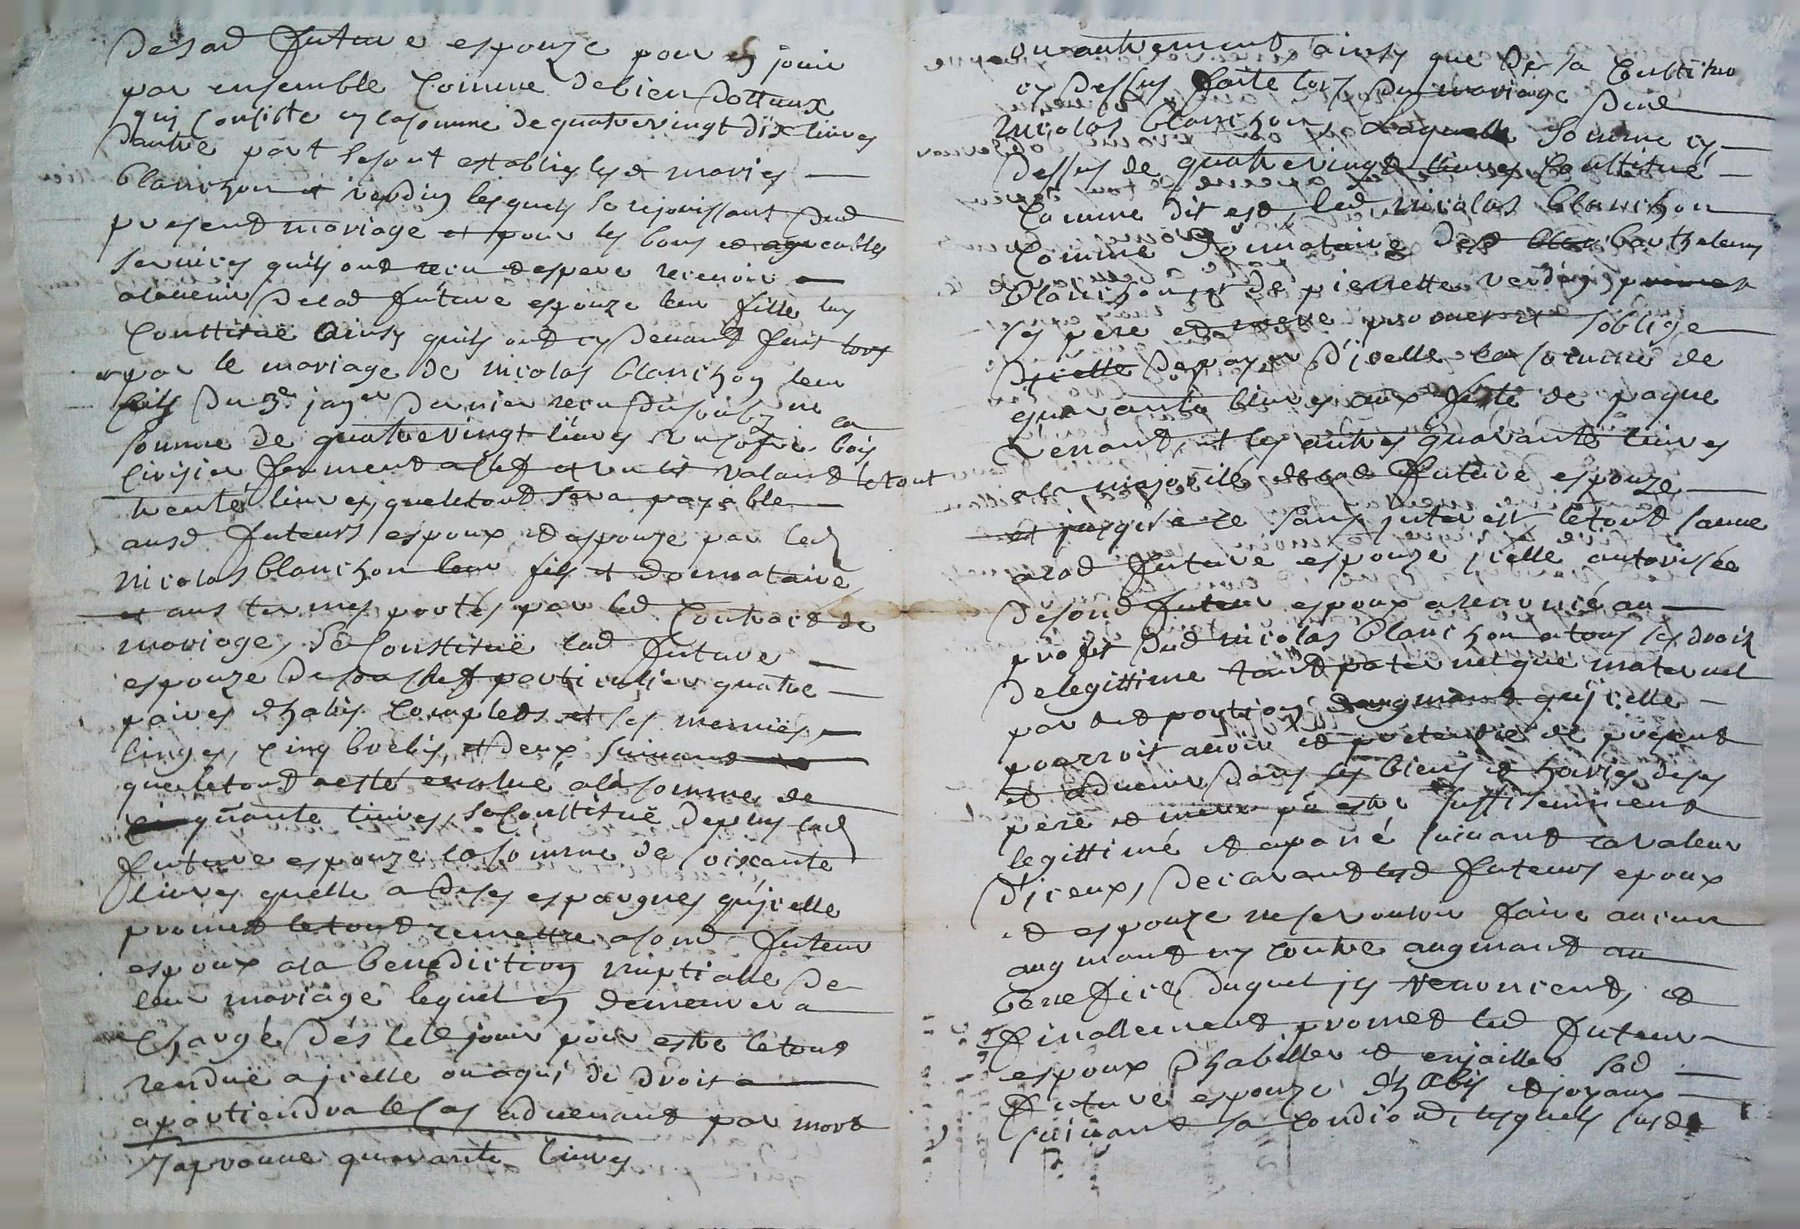 de sad future espouze pour en jouir
par ensemble Comme de bien dottaux
qui consiste en la somme de quatrevingt dix livres
dautre part se sont establis lesd mariés
blanchon et verdin lesquels se rejouissant dud
present mariage et pour les bons et agreables
services quils ont receu et espere recevoir
aladvenir de lad future espouze leur fille luy
Constitue ainsy quils ont cy devant fait lors
par le mariage de nicolas blanchon leur
fils du 3e janer dernier receu du la
somme de quatrevingt livres un cofre bois
cirisier ferment a clef et un lit valant le tout
trente livres, que le tout sera payable
ausd futeurs espoux et espouze par led
nicolas blanchon leur fils et donnataire
et aux termes portés par led Contract de
mariage, se Constitue lad future
espouze de son chef particulier quatre
paires dhabis Complets et ses menues
linges, cinq brebis, et deux suivant
que le tout a esté evalué a la somme de
quante livres, se Constitue de plus lad
future espouze la somme de soixante
livres quelle a de ses espargnes quicelle
promet le tout remettre a sond futeur
espoux a la benediction nuptialle de
leur mariage lequel en demeurera
Chargé des led jour pour estre le tout
rendue a icelle ou a qui de droit
apartiendra le cas advenant par mort
Japrouve quarante livres
ou autrement, ainsy que de la Constitution
cy dessus faite lors du mariage dud
nicolas blanchon, Laquelle somme cy
dessus de quatrevingt livres Constitué
Comme dit est, led nicolas blanchon
Comme donnataire desd barthelemy
blanchon et de pierrette verdin
ses pere et mere promet et soblige
dicelle de payer dicelle la somme de
quarante livres aux feste de paque
venant, et les autres quarante livres
a la majorite de lad future espouze
et jusqua ce sans interest le tout
a lad future espouze icelle autorisée
de sond futeur espoux a renoncé au
profit dud nicolas blanchon a tous ses droits
de legittime tant paternel que maternel
part et portion daugmant quicelle
pourroit avoir et pretendre de present
et advenir dans les biens et hoiries de ses
pere et mere pr estre suffisemment
legittimé et apané suivant la valeur
diceux, declarant lesd futeurs epoux
et espouze ne se vouloir faire aucun
augmant ny contre augmant au
benefice duquel ils renoncent, et
finallement promet led futeur
espoux dhabiller et enjoailler sad
future espouze dhabis et joyaux
suivant sa condiond, lesquels susd